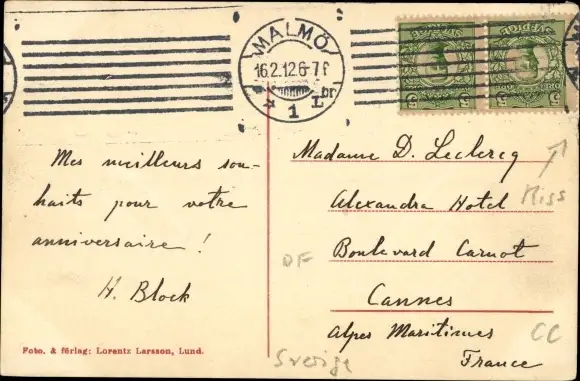 MALMÖ
16.2.12.6-7 f
* 1 L br
SVERIGE
SVERIGE
5
5
5
5
Mes meilleurs sou-
haits pour votre
anniversaire !
H. Block
Madame D. Leclercq
Alexandra Hotel
Boulevard Carnot
Cannes
Alpes Maritimes
France
Miss
DF
CC
Sverige
Foto. & förlag: Lorentz Larsson, Lund.